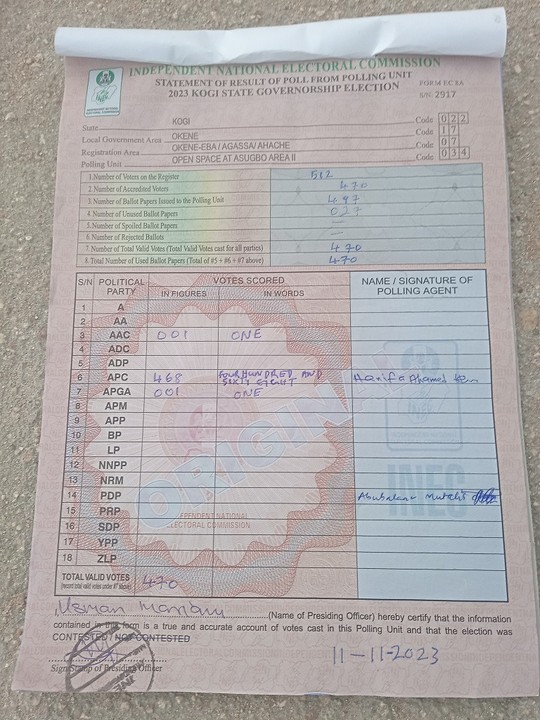 INDEPENDENT NATIONAL ELECTORAL COMMISSION
STATEMENT OF RESULT OF POLL FROM POLLING UNIT
FORM EC 8A
2023 KOGI STATE GOVERNORSHIP ELECTION
S/N: 2917
State KOGI Code 0 2 2
Local Government Area OKENE Code 1 7
Registration Area OKENE-EBA / AGASSA/ AHACHE Code 0 7
Polling Unit OPEN SPACE AT ASUGBO AREA II Code 0 3 4
1.Number of Voters on the Register 512
2.Number of Accredited Voters 470
3.Number of Ballot Papers Issued to the Polling Unit 497
4.Number of Unused Ballot Papers 027
5.Number of Spoiled Ballot Papers —
6.Number of Rejected Ballots —
7.Number of Total Valid Votes (Total Valid Votes cast for all parties) 470
8.Total Number of Used Ballot Papers (Total of #5 + #6 + #7 above) 470
S/N POLITICAL PARTY VOTES SCORED NAME / SIGNATURE OF POLLING AGENT
IN FIGURES IN WORDS
1 A
2 AA
3 AAC 001 ONE
4 ADC
5 ADP
6 APC 468 FOUR HUNDRED AND SIXTY EIGHT
7 APGA 001 ONE
8 APM
9 APP
10 BP
11 LP
12 NNPP
13 NRM
14 PDP
15 PRP
16 SDP
17 YPP
18 ZLP
ORIGINAL
INEC
INDEPENDENT NATIONAL
ELECTORAL COMMISSION
TOTAL VALID VOTES 470
Usman Mariam (Name of Presiding Officer) hereby certify that the information
contained in this form is a true and accurate account of votes cast in this Polling Unit and that the election was
CONTESTED / NOT CONTESTED
11-11-2023
Sign/Stamp of Presiding Officer